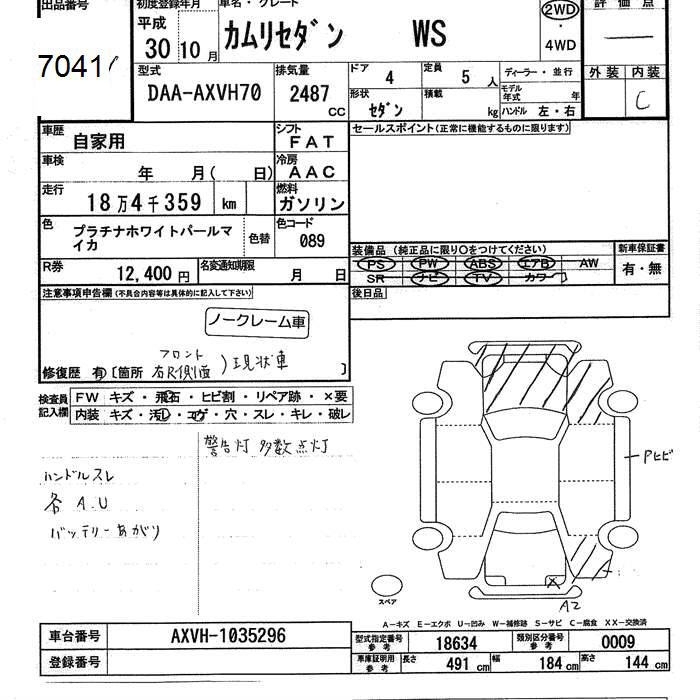 出品番号 初度登録年月 車名・グレード 2WD 評価点
平成 カムリセダン WS ・
30 10 月 4WD
7041
型式 排気量 ドア 4 定員 5 人 ディーラー・並行 外装 内装
DAA-AXVH70 2487 cc 形状 セダン 積載 kg モデル年式 年 C
ハンドル 左・右
車歴 自家用 シフト FAT セールスポイント(正常に機能するものに限ります)
車検 年 月( 日) 冷房 AAC
走行 18万4千359 km 燃料 ガソリン
色 プラチナホワイトパールマイカ 色替 色コード 089
装備品 (純正品に限り○をつけてください) 新車保証書
R券 12,400円 名変通知期限 月 日 PS PW ABS エアB AW 有・無
SR ナビ TV カワ
注意事項申告欄(不具合内容等は具体的に記入して下さい) 後日品
ノークレーム車
フロント
修復歴 有〔箇所 右R側面 )現状車 〕
検査員 FW キズ・飛石・ヒビ割・リペア跡・×要
記入欄 内装 キズ・汚レ・コゲ・穴・スレ・キレ・破レ
警告灯 多数点灯
ハンドルスレ
各 A.U
バッテリーあがり
Pヒビ
スペア
A2
A-キズ E-エクボ U-凹み W-補修跡 S-サビ C-腐食 XX-交換済
車台番号 AXVH-1035296 型式指定番号 参考 18634 類別区分番号 参考 0009
登録番号 車庫証明用 参考 長さ 491 cm 幅 184 cm 高さ 144 cm